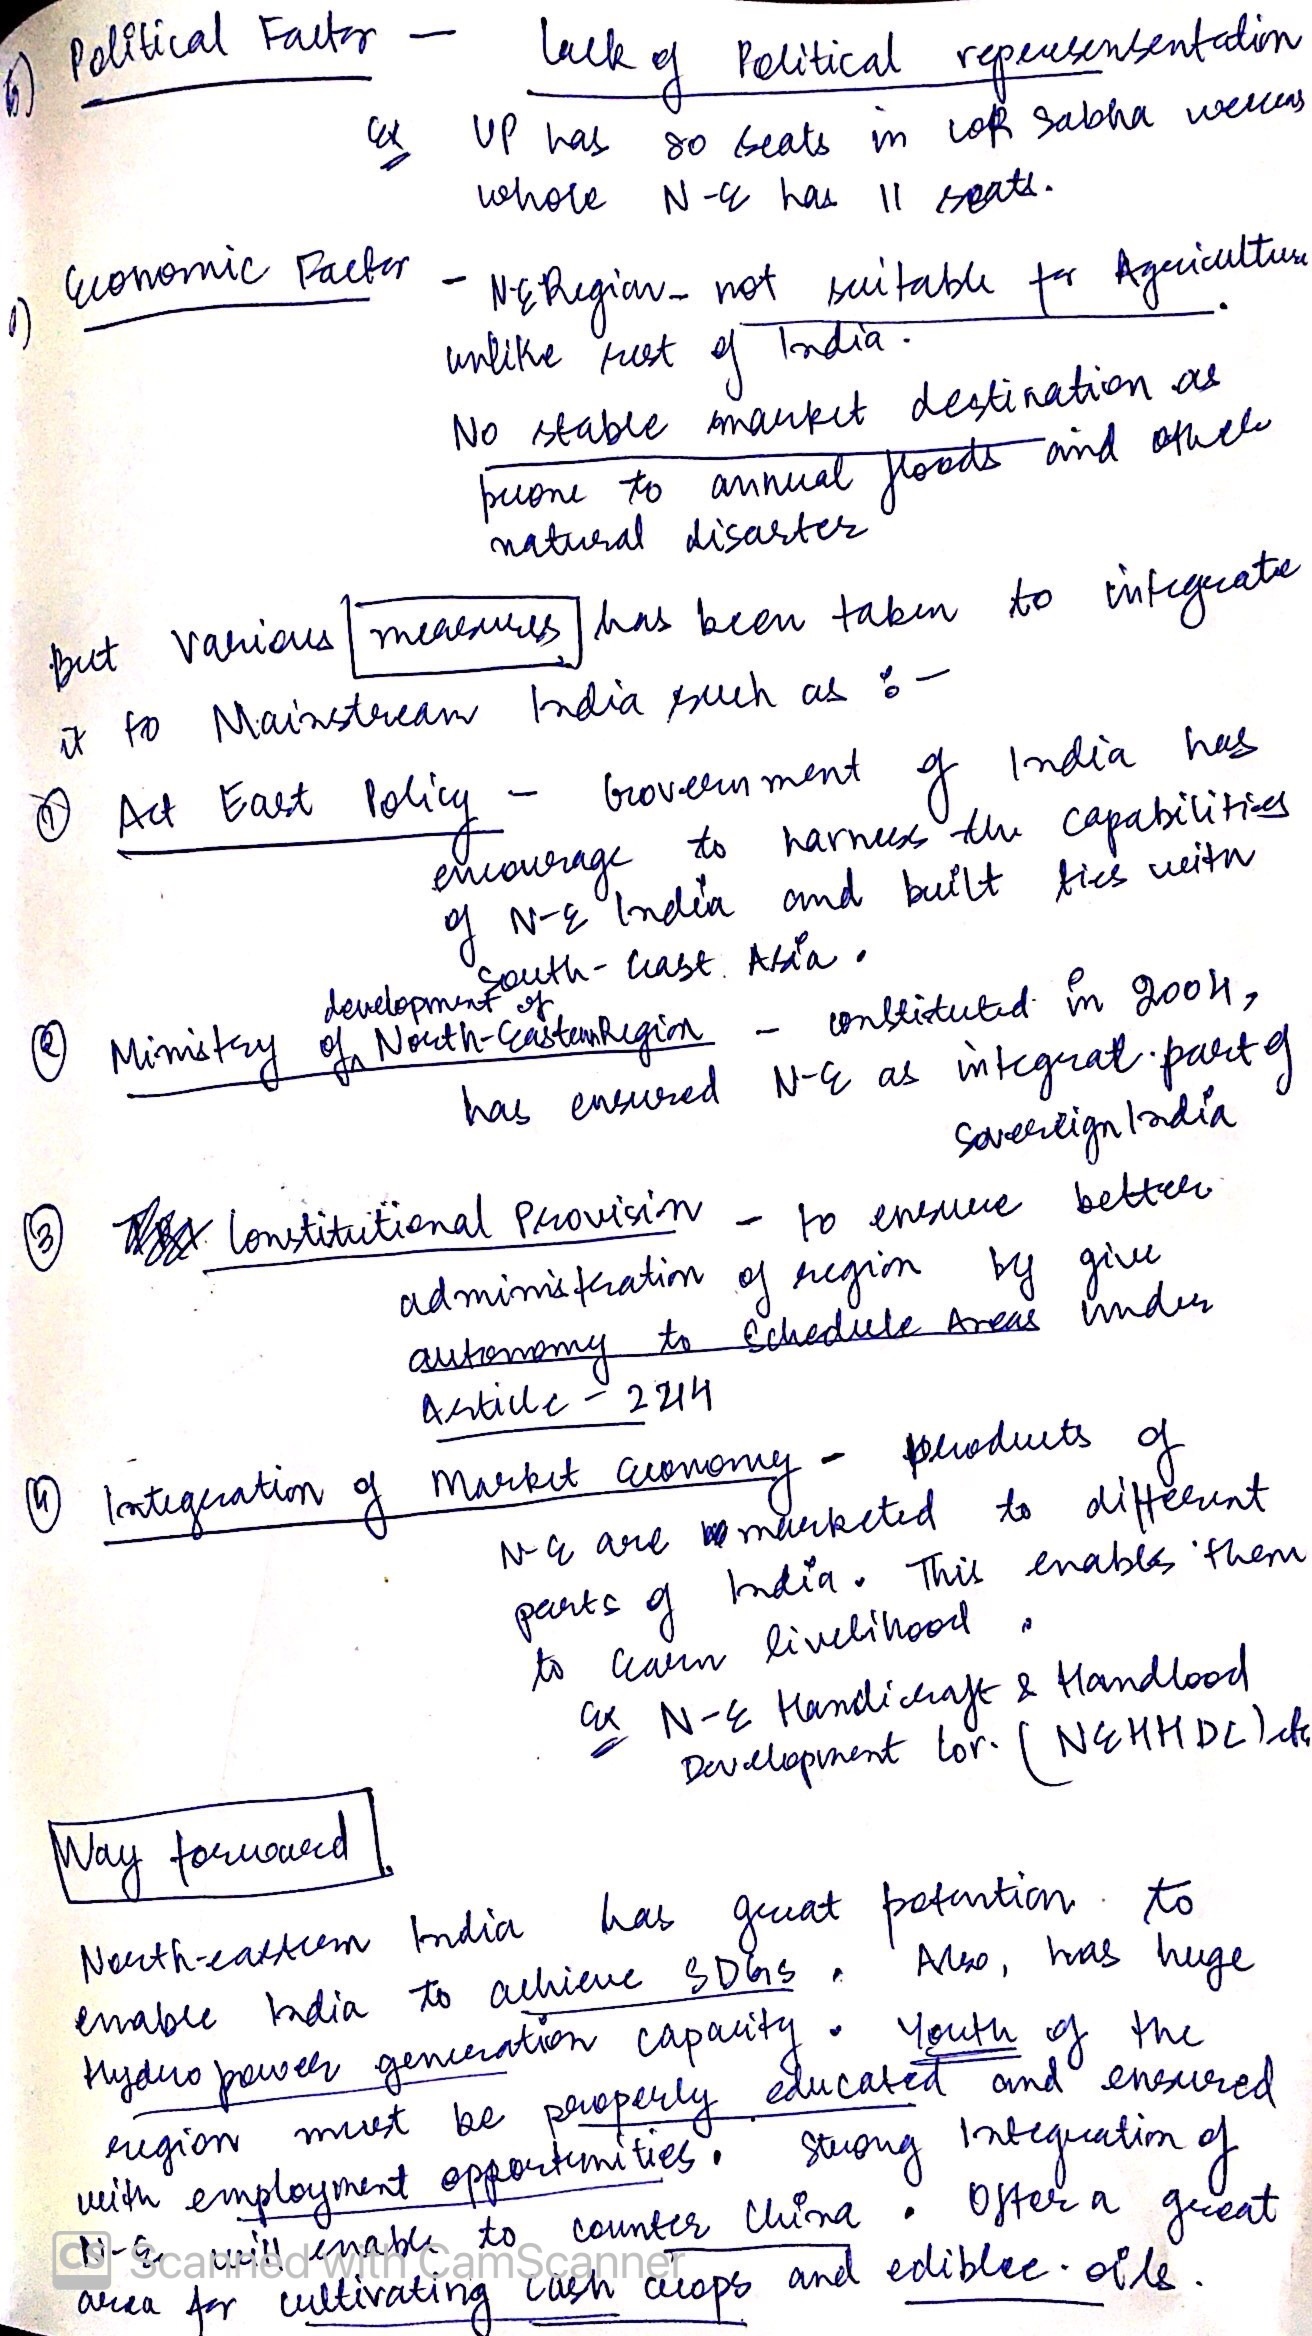 b) Political Factor - Lack of Political repensensentation
Ex UP has 80 seats in Lok Sabha
whole N-E has 11 seats.
Economic Factor - N-E Region - not suitable for Agriculture
unlike rest of India.
No stable market destination as
prone to annual floods and other
natural disaster
But various measures has been taken to integrate
it to Mainstream India such as :-
① Act East Policy - Government of India has
encourage to harness the capabilities
of N-E India and built ties with
South-East Asia.
development of
② Ministry of North-Eastern Region - constituted in 2004,
has ensured N-E as integral part of
Sovereign India
③ Constitutional Provision - to ensure better
administration of region by give
autonomy to Schedule Areas under
Article - 244
④ Integration of Market Economy - products of
N-E are marketed to different
parts of India. This enables them
to earn livelihood.
Ex N-E Handicraft & Handlood
Development Cor. (NEHHDC) etc
Way forward
North-eastern India has great potention to
enable India to achieve SDGs. Also, has huge
Hydro power generation capacity. Youth of the
region must be properly educated and ensured
with employment opportunities. Strong Integration of
N-E will enable to counter China. Offer a great
area for cultivating cash crops and edible oils.
CS Scanned with CamScanner